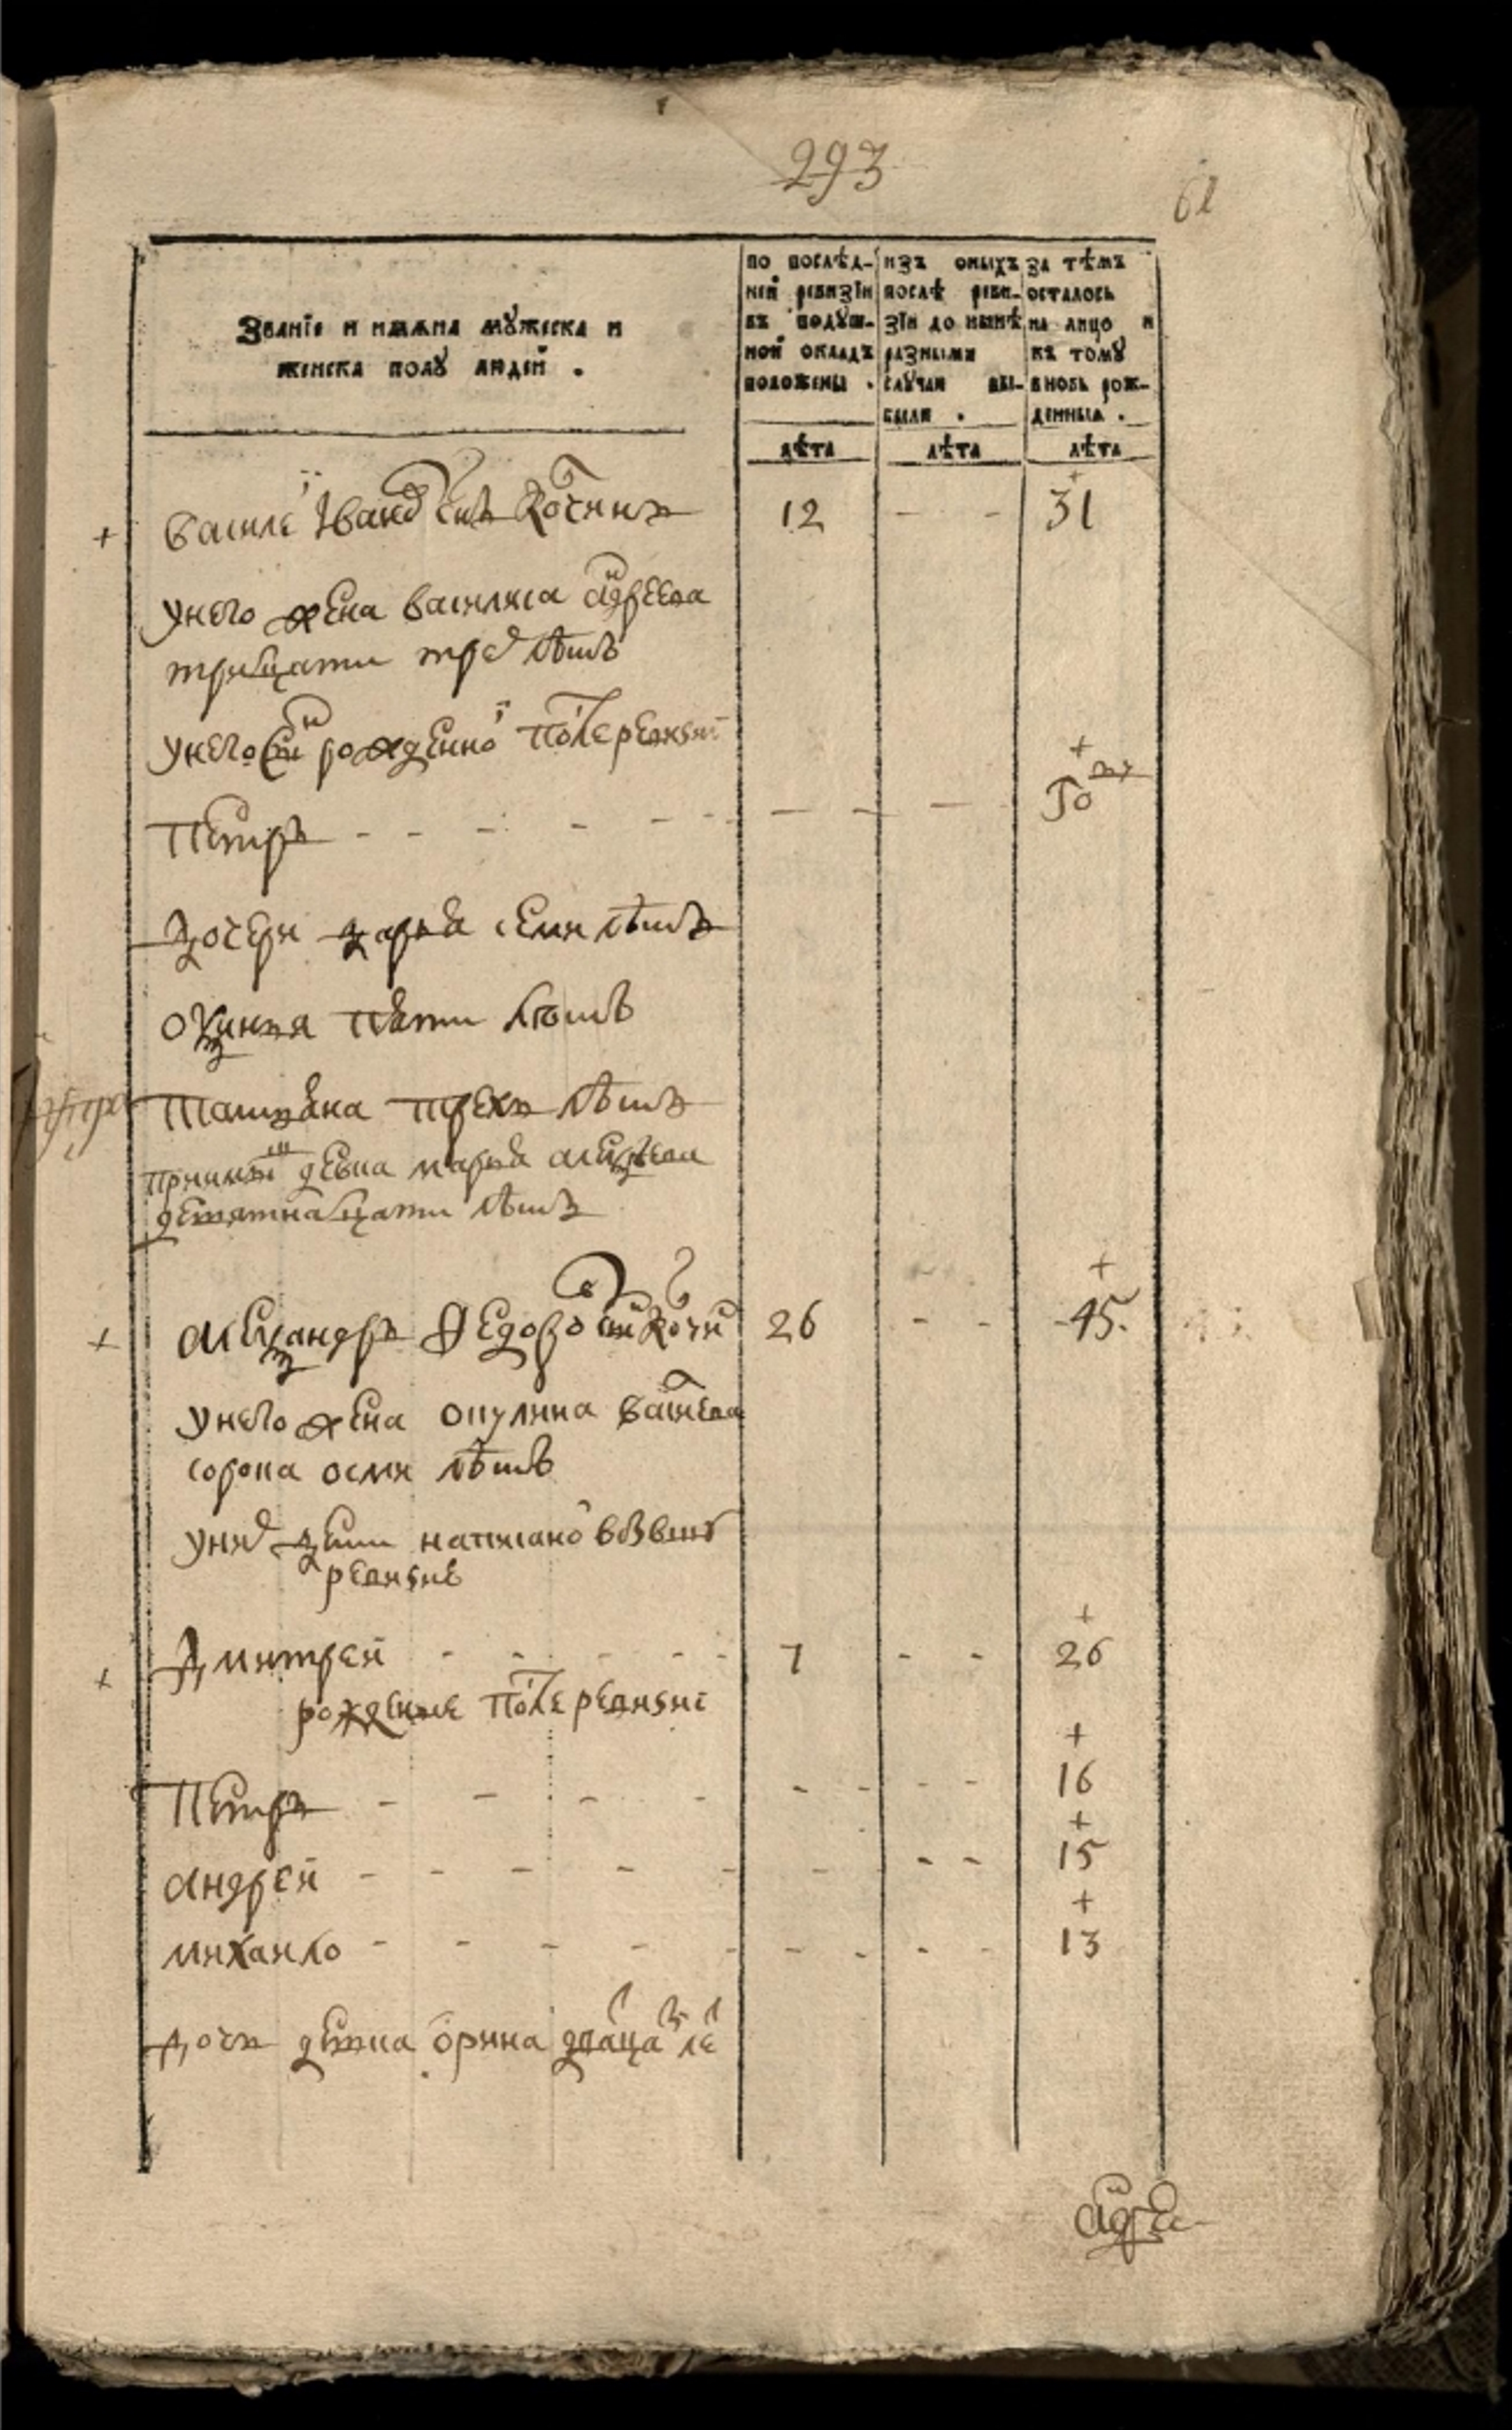 293
61
Званіе и имѧна мꙋжеска и
женска полꙋ людей .
по послѣд-
ней ревизіи
въ подꙋш-
ной окладъ
положены .
изъ оныхъ
послѣ реви-
зіи до нынѣ
разными
случаи вы-
были .
за тѣмъ
осталось
на лицо и
къ томꙋ
вновь рож-
денныя .
лѣта
лѣта
лѣта
+ Василей Иванов снъ Кочнинъ 12 - - 31
У него жена Василиса Андреева
тритцати трех лѣтъ
У него снъ рожденной после ревизиі
Петръ - - - - - - - - +
Дочери Дарья семи лѣтъ
Овдинья пяти лѣтъ
Татьяна трехъ лѣтъ
девка Марья Алексѣева
девятнатцати лѣтъ
+ Александръ Ѳедоров снъ Кочнин 26 - - 45.
У него жена Окулина Васильева
сорока осми лѣтъ
У них дети написаной в бывшей
ревизие
+ Дмитрей - - - - - 7 - - 26
рожденые после ревизиі
Петръ - - - - - - - - 16
Андрей - - - - - - - - 15
Михаило - - - - - - - - - 13
Дочь девка Орина дватцати лет
Андрей